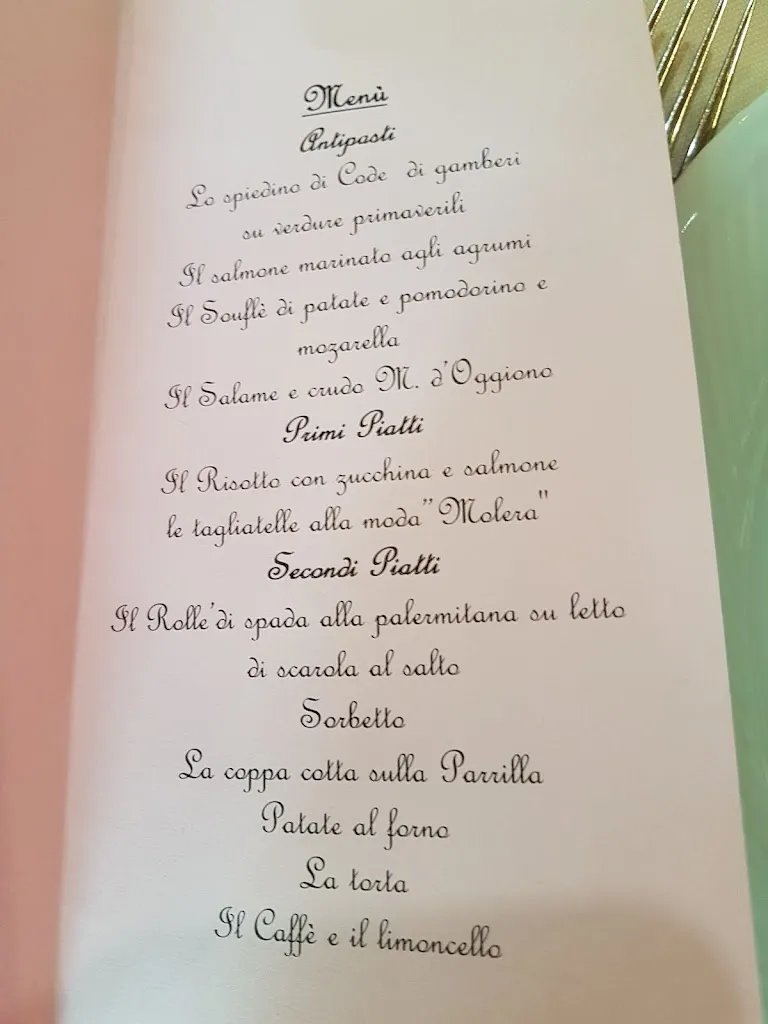 Menù
Antipasti
Lo spiedino di Code di gamberi
su verdure primaverili
Il salmone marinato agli agrumi
Il Souflè di patate e pomodorino e
mozarella
Il Salame e crudo M. d'Oggiono
Primi Piatti
Il Risotto con zucchina e salmone
le tagliatelle alla moda" Molera"
Secondi Piatti
Il Rolle'di spada alla palermitana su letto
di scarola al salto
Sorbetto
La coppa cotta sulla Parrilla
Patate al forno
La torta
Il Caffè e il limoncello